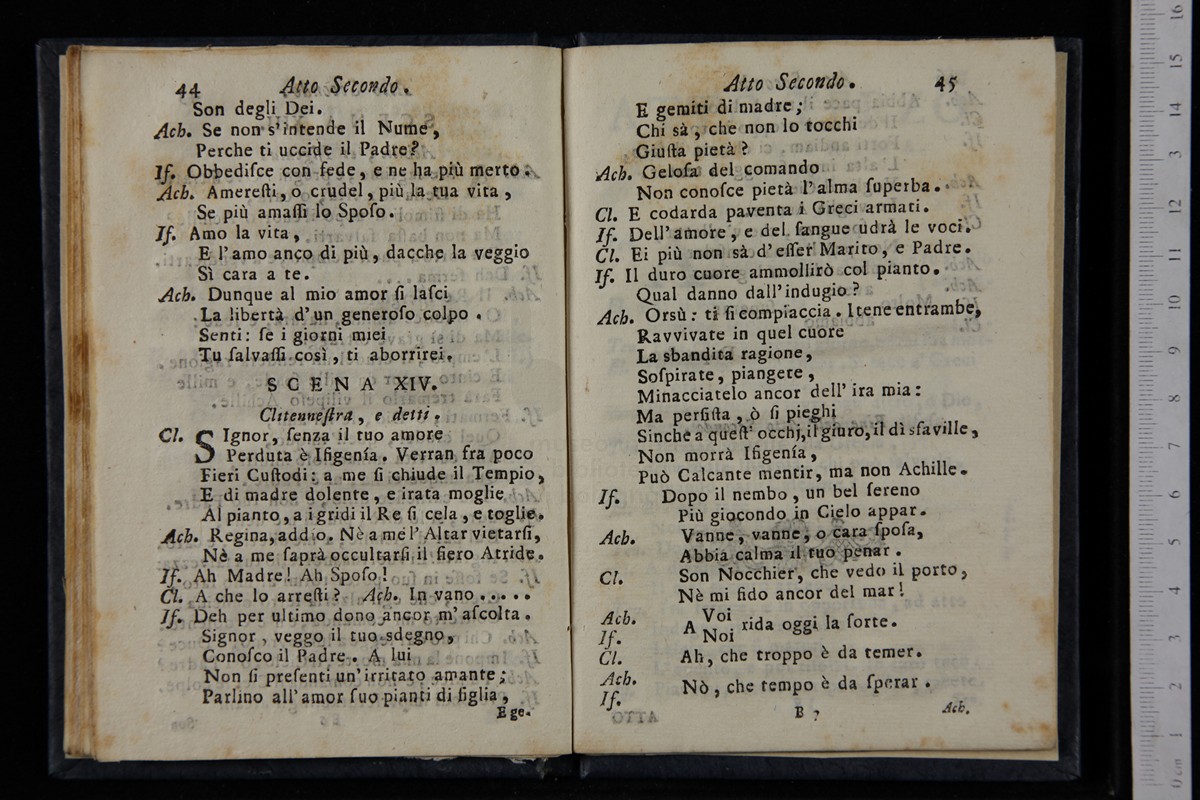 44 Atto Secondo.
Son degli Dei.
Ach. Se non s'intende il Nume,
Perche ti uccide il Padre?
If. Obbediſce con fede, e ne ha più merto.
Ach. Amereſti, ò crudel, più la tua vita,
Se più amaſſi lo Spoſo.
If. Amo la vita,
E l'amo anco di più, dacche la veggio
Sì cara a te.
Ach. Dunque al mio amor ſi laſci
La libertà d'un generoſo colpo.
Senti: ſe i giorni miei
Tu ſalvaſſi così, ti aborrirei.
SCENA XIV.
Clitenneſtra, e detti.
Cl. SIgnor, ſenza il tuo amore
Perduta è Ifigenía. Verran fra poco
Fieri Cuſtodi: a me ſi chiude il Tempio,
E di madre dolente, e irata moglie
Al pianto, a i gridi il Re ſi cela, e toglie.
Ach. Regina, addio. Nè a me l'Altar vietarſi,
Nè a me ſaprà occultarſi il fiero Atride.
If. Ah Madre! Ah Spoſo!
Cl. A che lo arreſti? Ach. In vano.....
If. Deh per ultimo dono ancor m'aſcolta.
Signor, veggo il tuo sdegno,
Conoſco il Padre. A lui
Non ſi preſenti un'irritato amante;
Parlino all'amor ſuo pianti di figlia,
E ge-
Atto Secondo. 45
E gemiti di madre;
Chi sà, che non lo tocchi
Giuſta pietà?
Ach. Geloſa del comando
Non conoſce pietà l'alma ſuperba.
Cl. E codarda paventa i Greci armati.
If. Dell'amore, e del ſangue udrà le voci.
Cl. Ei più non sà d'eſſer Marito, e Padre.
If. Il duro cuore ammollirò col pianto.
Qual danno dall'indugio?
Ach. Orsù: ti ſi compiaccia. Itene entrambe,
Ravvivate in quel cuore
La sbandita ragione,
Soſpirate, piangete,
Minacciatelo ancor dell'ira mia:
Ma perſiſta, ò ſi pieghi
Sinche a queſt'occhj, il giuro, il dì sfaville,
Non morrà Ifigenía,
Può Calcante mentir, ma non Achille.
If. Dopo il nembo, un bel ſereno
Più giocondo in Cielo appar.
Ach. Vanne, vanne, o cara ſpoſa,
Abbia calma il tuo penar.
Cl. Son Nocchier, che vedo il porto,
Nè mi fido ancor del mar!
Ach. A Voi
If. Noi rida oggi la ſorte.
Cl. Ah, che troppo è da temer.
Ach.
If. Nò, che tempo è da ſperar.
Ach.